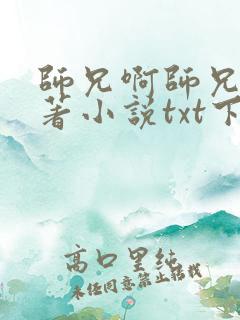 師兄啊師兄
著小説txt下
高口里純
未经同意禁止转载